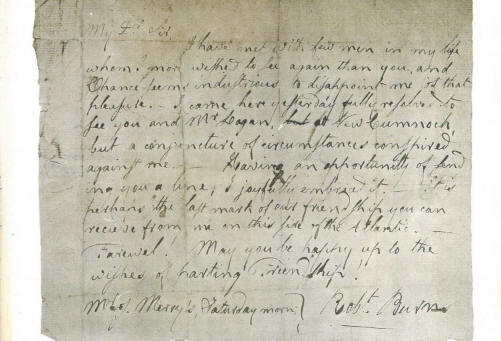 My Dr Sir
I have met with few men in my life
whom I more wished to see again than you, and
Chance seems industrious to disappoint me of that
pleasure. – I came here yesterday fully resolved to
see you and Mr Logan, at New Cumnock,
but a conjuncture of circumstances conspired
against me. — Having an opportunity of send
ing you a line, I joyfully embrace it. – It is
perhaps the last mark of our friendship you can
recieve from me on this side of the Atlantic. —
Farewel! May you be happy up to the
wishes of parting Friendship!
Merry's Saturday morn} Robt Burns